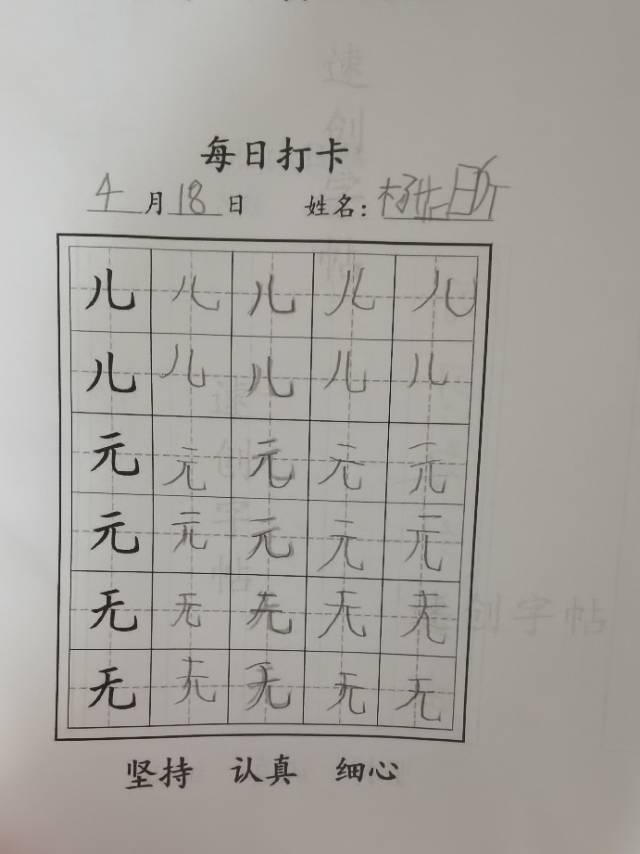 每日打卡
4月18日 姓名：杨
儿 儿 儿 儿 儿
儿 儿 儿 儿 儿
元 元 元 元 元
元 元 元 元 元
无 无 无 无 无
无 无 无 无 无
坚持 认真 细心
速创字帖
速创字帖
创字帖